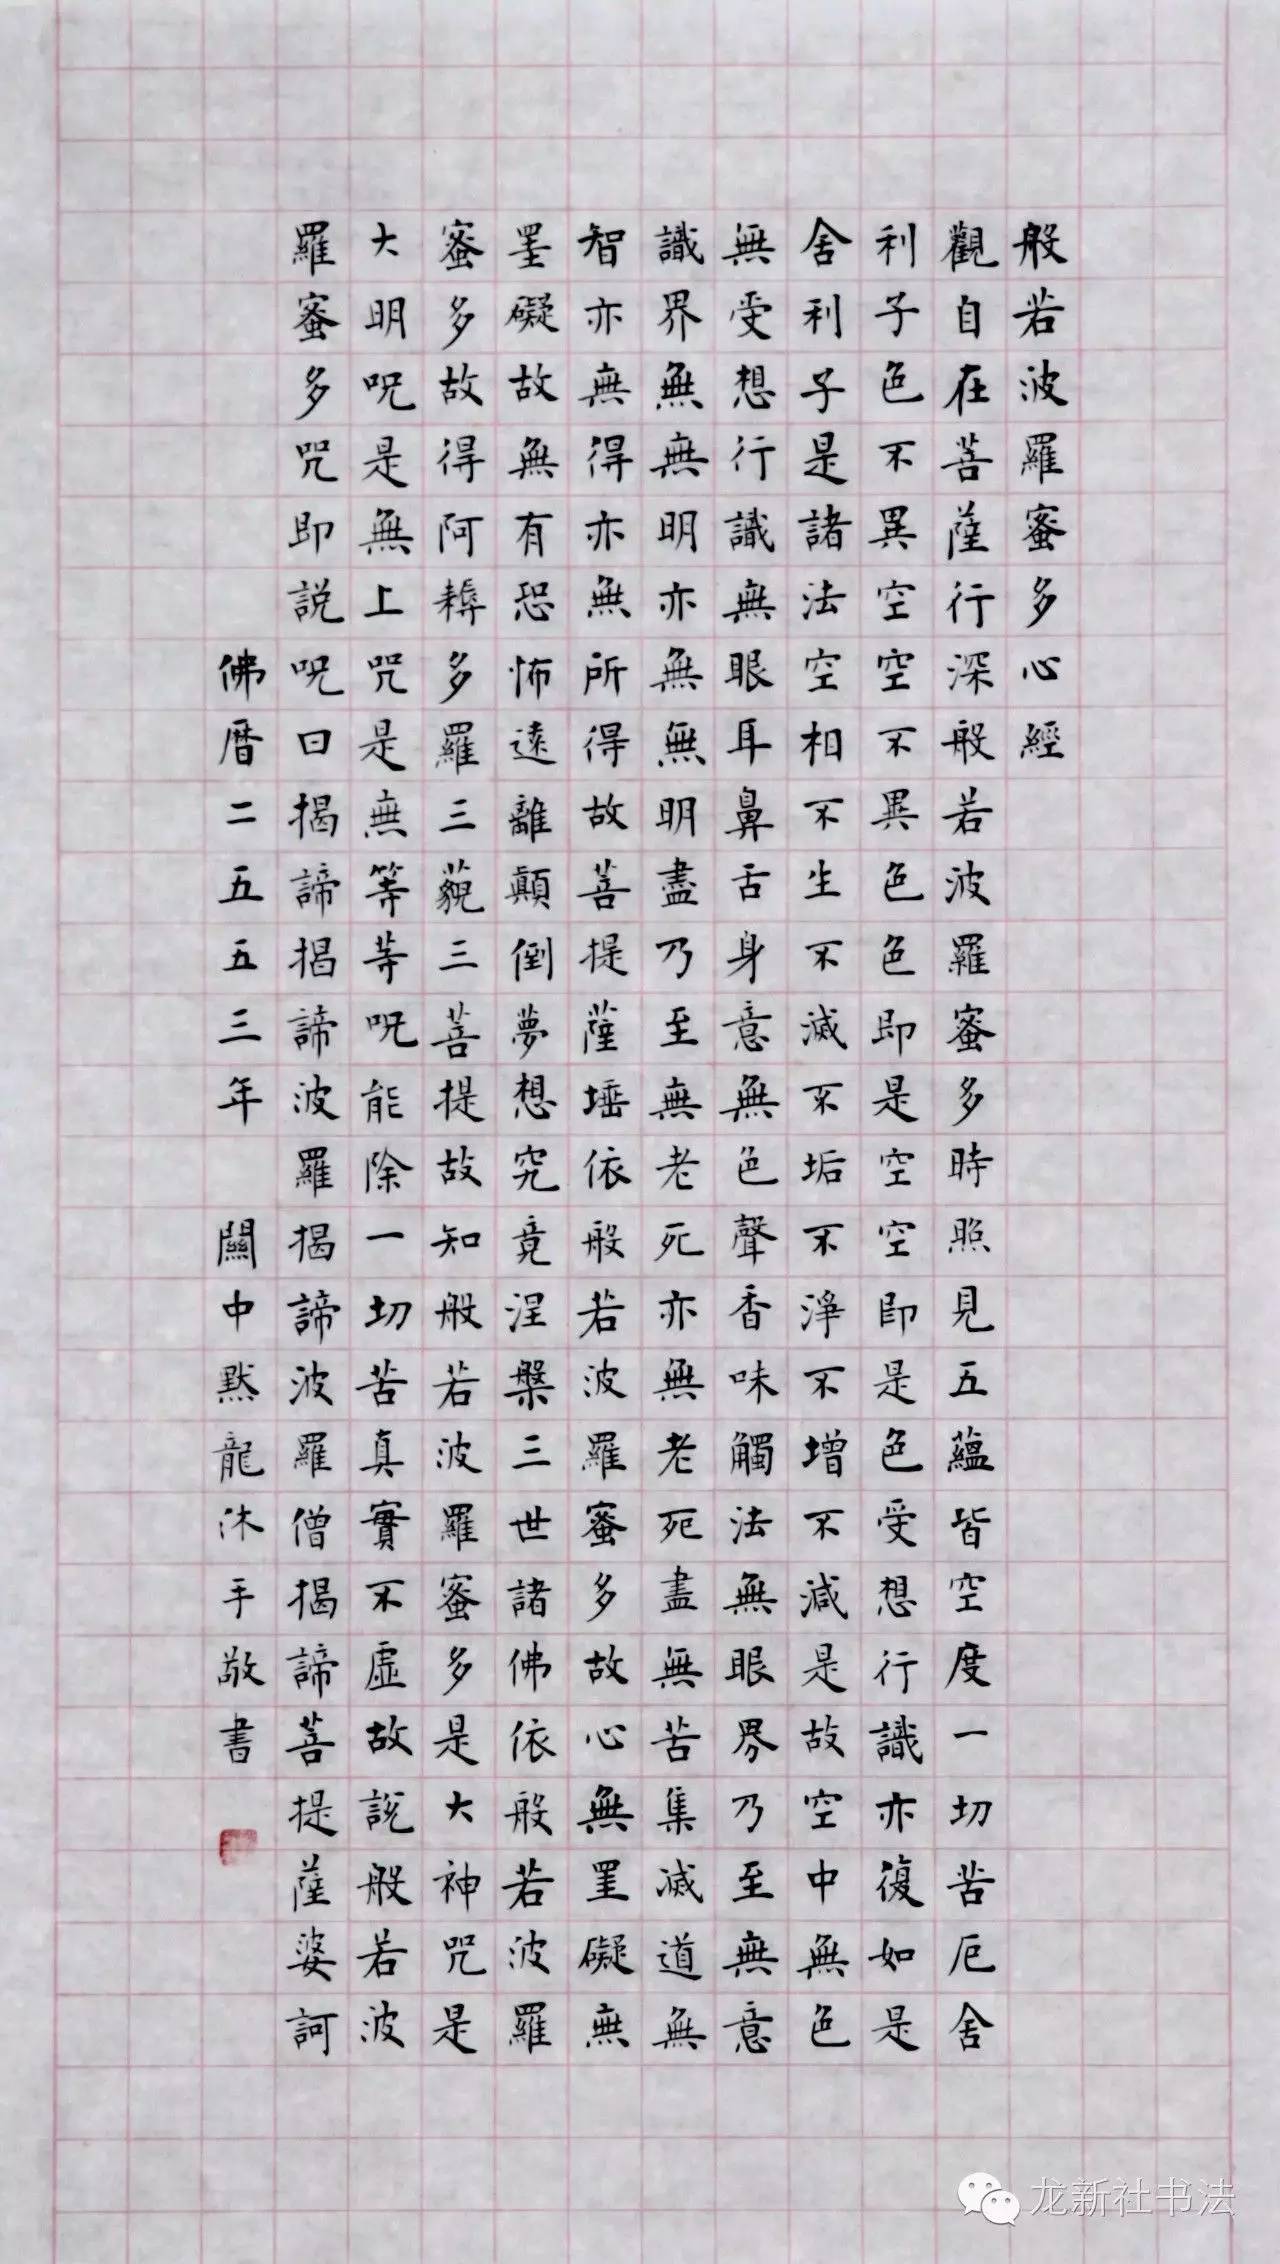 般若波羅蜜多心經
觀自在菩薩行深般若波羅蜜多時照見五蘊皆空度一切苦厄舍
利子色不異空空不異色色即是空空即是色受想行識亦復如是
舍利子是諸法空相不生不滅不垢不淨不增不減是故空中無色
無受想行識無眼耳鼻舌身意無色聲香味觸法無眼界乃至無意
識界無無明亦無無明盡乃至無老死亦無老死盡無苦集滅道無
智亦無得亦無所得故菩提薩埵依般若波羅蜜多故心無罣礙無
罣礙故無有恐怖遠離顛倒夢想究竟涅槃三世諸佛依般若波羅
蜜多故得阿耨多羅三藐三菩提故知般若波羅蜜多是大神咒是
大明呪是無上咒是無等等呪能除一切苦真實不虛故說般若波
羅蜜多咒即説呪曰揭諦揭諦波羅揭諦波羅僧揭諦菩提薩婆訶
佛曆二五五三年 關中默龍沐手敬書
龙新社书法